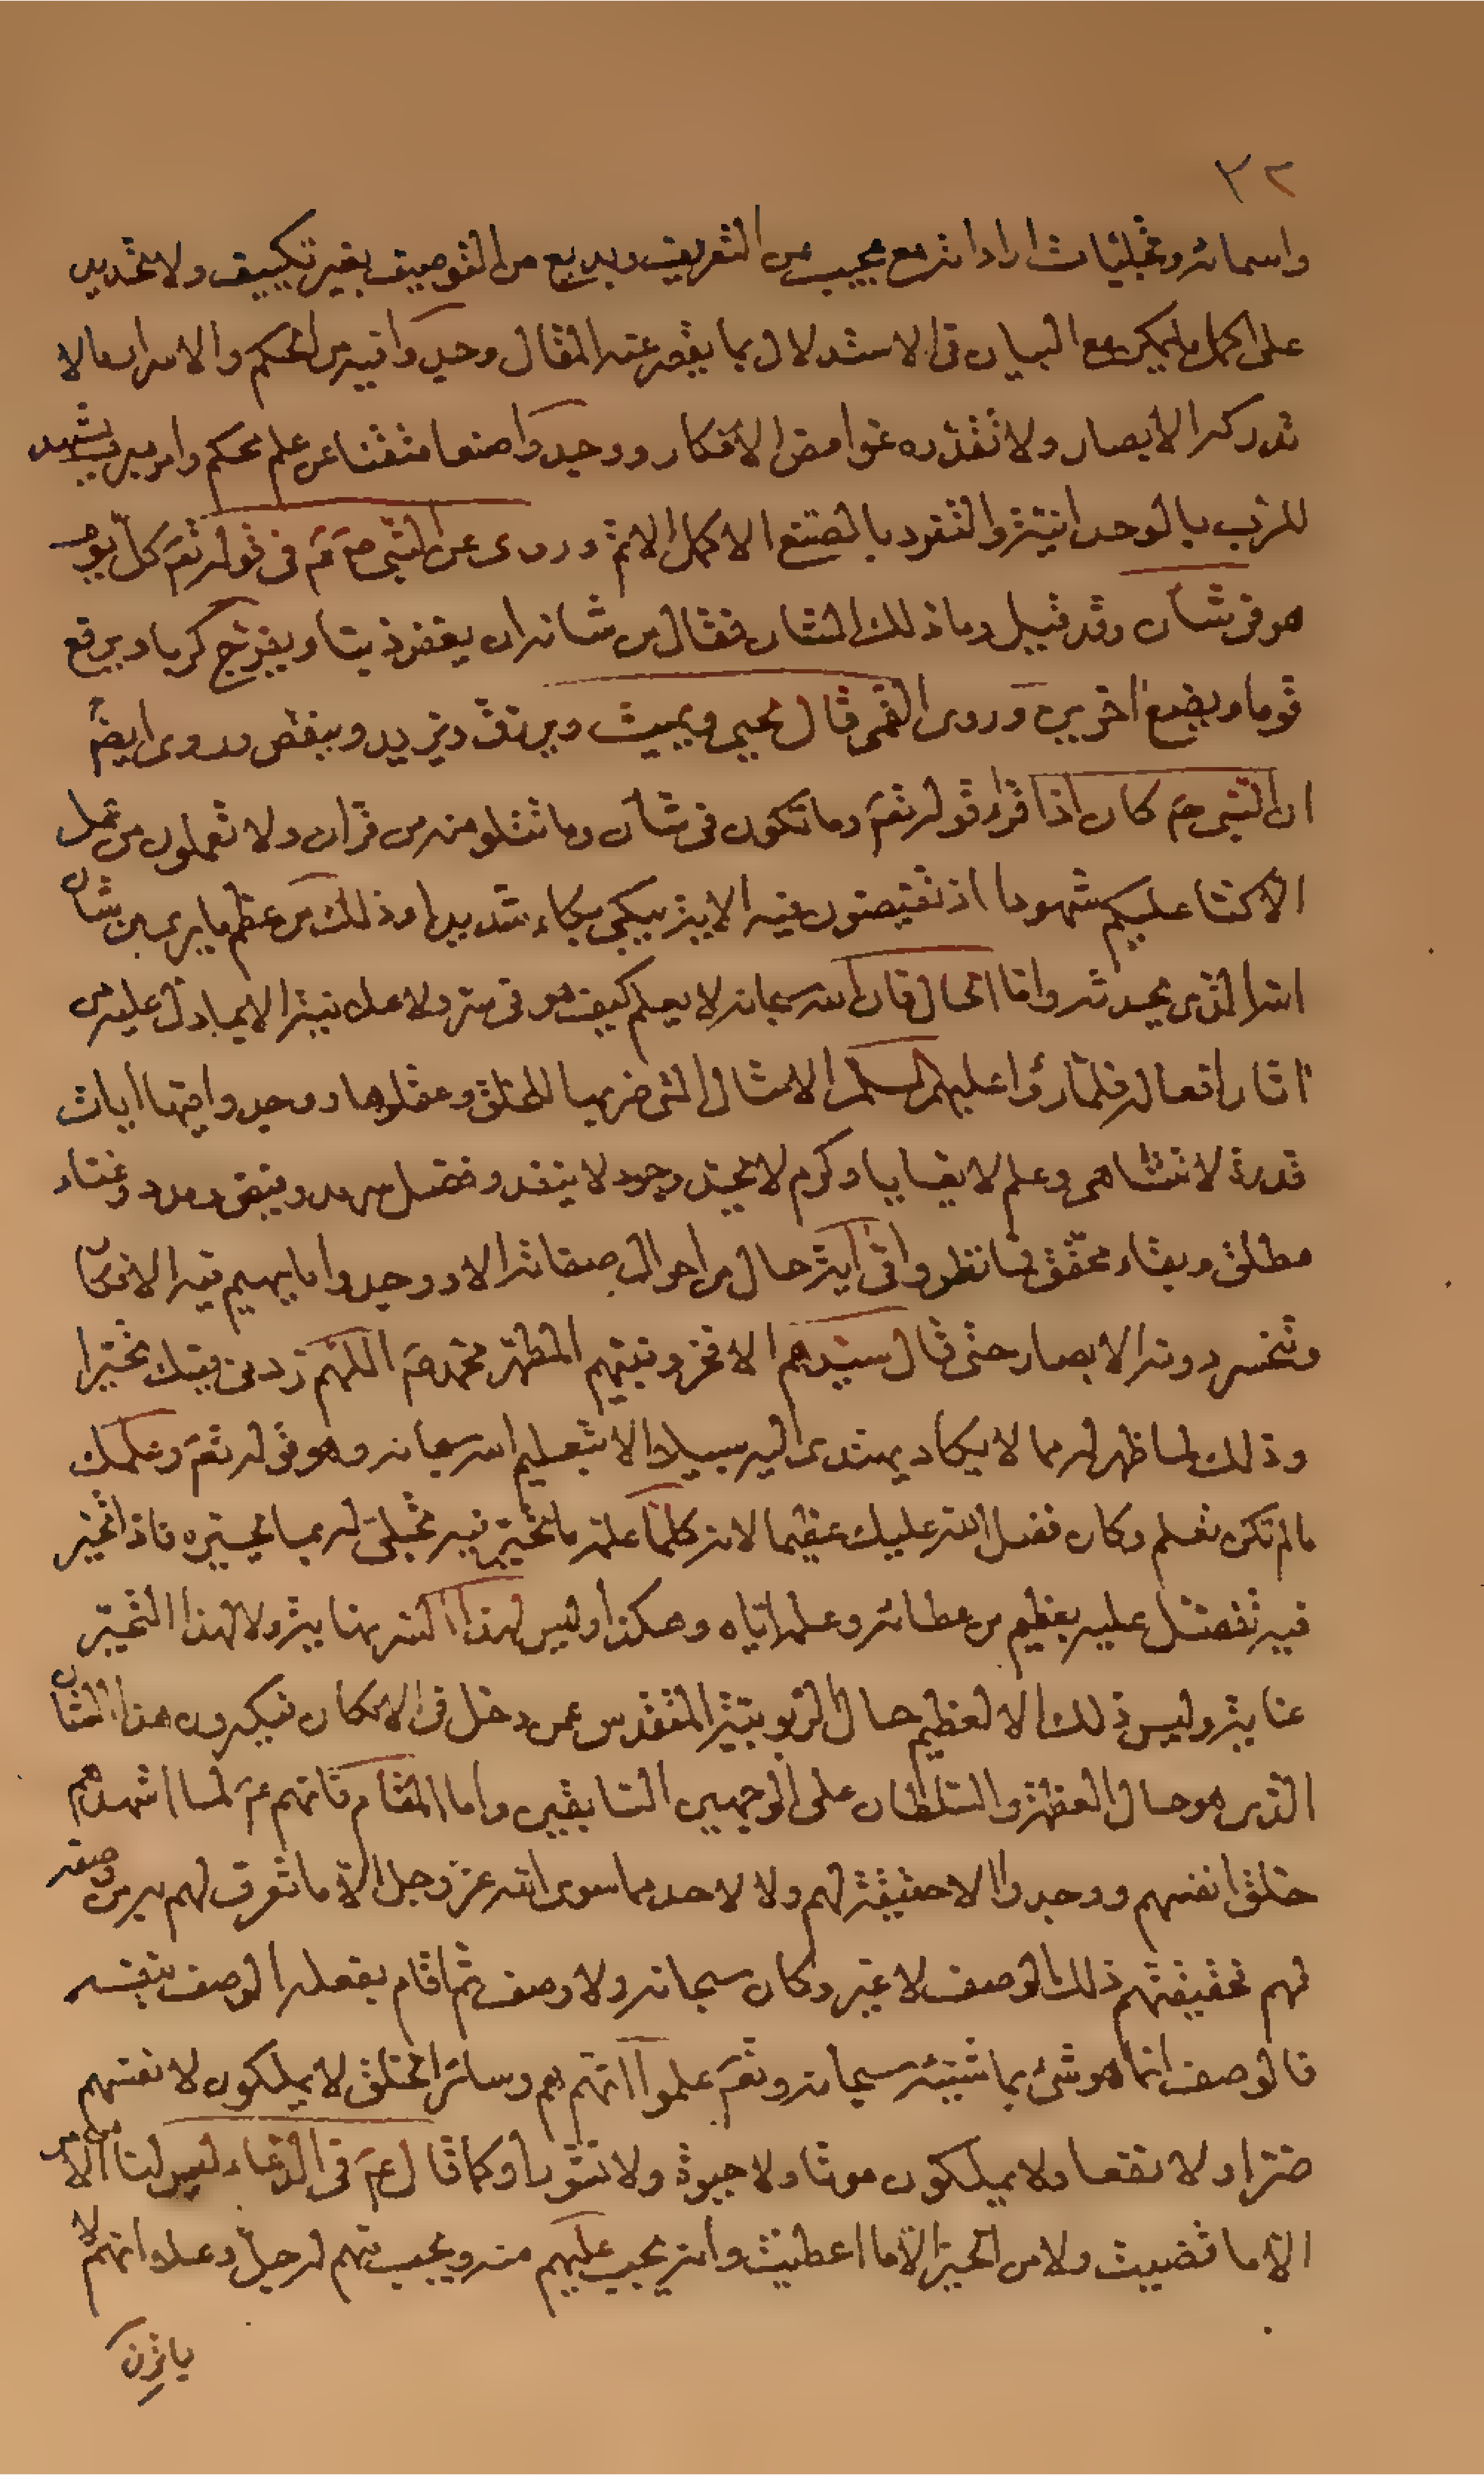 ٣٢
واسمائه وتجليات اراداته مع عجيب من التعريف وبديع من التوصيف بغير تكييف ولا تحديد
على اكمل ما يمكن مع البيان في الاستدلال بما يقصر عنه المقال وجدوا فيه من الحكم والاسرار ما لا
تدركه الابصار ولا تقدّره غوامض الافكار ووجدوا صنعا متقنا عن علم محكم وامر مبرم يشهد
للرّب بالوحدانيّة والتفرد بالصّنع الاكمل الاتمّ وروى عن النّبي صّ مّ في قوله تعّ كلّ يوم
هو في شان وقد قيل وما ذلك الشان فقال من شانه ان يغفر ذنبا ويفرّج كربا ويرفع
قوما ويضع اخرين وروى القمي قال يحيى ويميت ويرزق ويزيد وينقص وروى ايضّ
ان النّبي صّ كان اذا قرء قوله تعّ وما تكون في شان وما تتلو منه من قران ولا تعملون من عمل
الّا كنّا عليكم شهودا اذ تفيضون فيه الاية يبكي بكاء شديدا وذلك من عظم ما يرى من شان
الله الذي يحدثه وامّا الحال فان الله سبحانه لا يعلم كيف هو في سرّ ولا علانية الا بما دلّ عليه من
اثار افعاله فلمّا رؤا عليهم السلم الامثال الّتي ضربها للخلق وعقلوها ووجدوا فيها ايات
قدرة لا تتناهى وعلم لا يغايا وكرم لا يحدّ وجود لا ينفد وفضل سرمد وفيض ومدد وغناء
مطلق وبقاء محقّق فانظروا في اية حال من احوال صفاته الا ووجدوا ما يهيم فيه الافكار
وتخسر دونه الابصار حتّى قال سيّدهم الافخر ونبيّهم المطهّر محمّد صّ اللهّم زدني فيك تحيّرا
وذلك لما ظهر له مما لا يكاد يهتدى اليه سبيلا الا بتعليم الله سبحانه وهو قوله تعّ وعلمك
ما لم تكن تعلم وكان فضل الله عليك عظيما لانه كلّما علمه ما تحيّر فيه تجلّى له بما يحيّره فاذا تحيّر
فيه تفضّل عليه بعظيم من عطائه وعلمه ايّاه وهكذا وليس لهذا النهر نهاية ولا لهذا التحيّر
غاية وليس ذلك الا لعظيم حال الربوبيّة المتقدس عمن دخل في الامكان فيكون هذا الشان
الذي هو حال العظمة والسّلطان على الوجهين السّابقين واما المقام فانهم عّ لما اشهدهم
خلق انفسهم ووجدوا الا حقيقة لهم ولا لاحد مما سوى الله عزّ وجل الّا ما تعرف لهم به من وصفه
لهم فحقيقتهم ذلك الوصف لا غير وكان سبحانه ولا وصف ثم اقام بفعله الوصف بنفسه
فالوصف انّما هو شئ بمشيّته سبحانه وتعّ علموا انّهم هم وسائر الخلق لا يملكون لانفسهم
ضرّا ولا نفعا ولا يملكون موتا ولا حيوة ولا نشورا وكما قال عّ في الدّعاء ليس لنا من الامر
الّا ما قضيت ولا من الخير الّا ما اعطيت وانه يجب عليهم منه ويجب بهم له جل وعلموا انهم لا